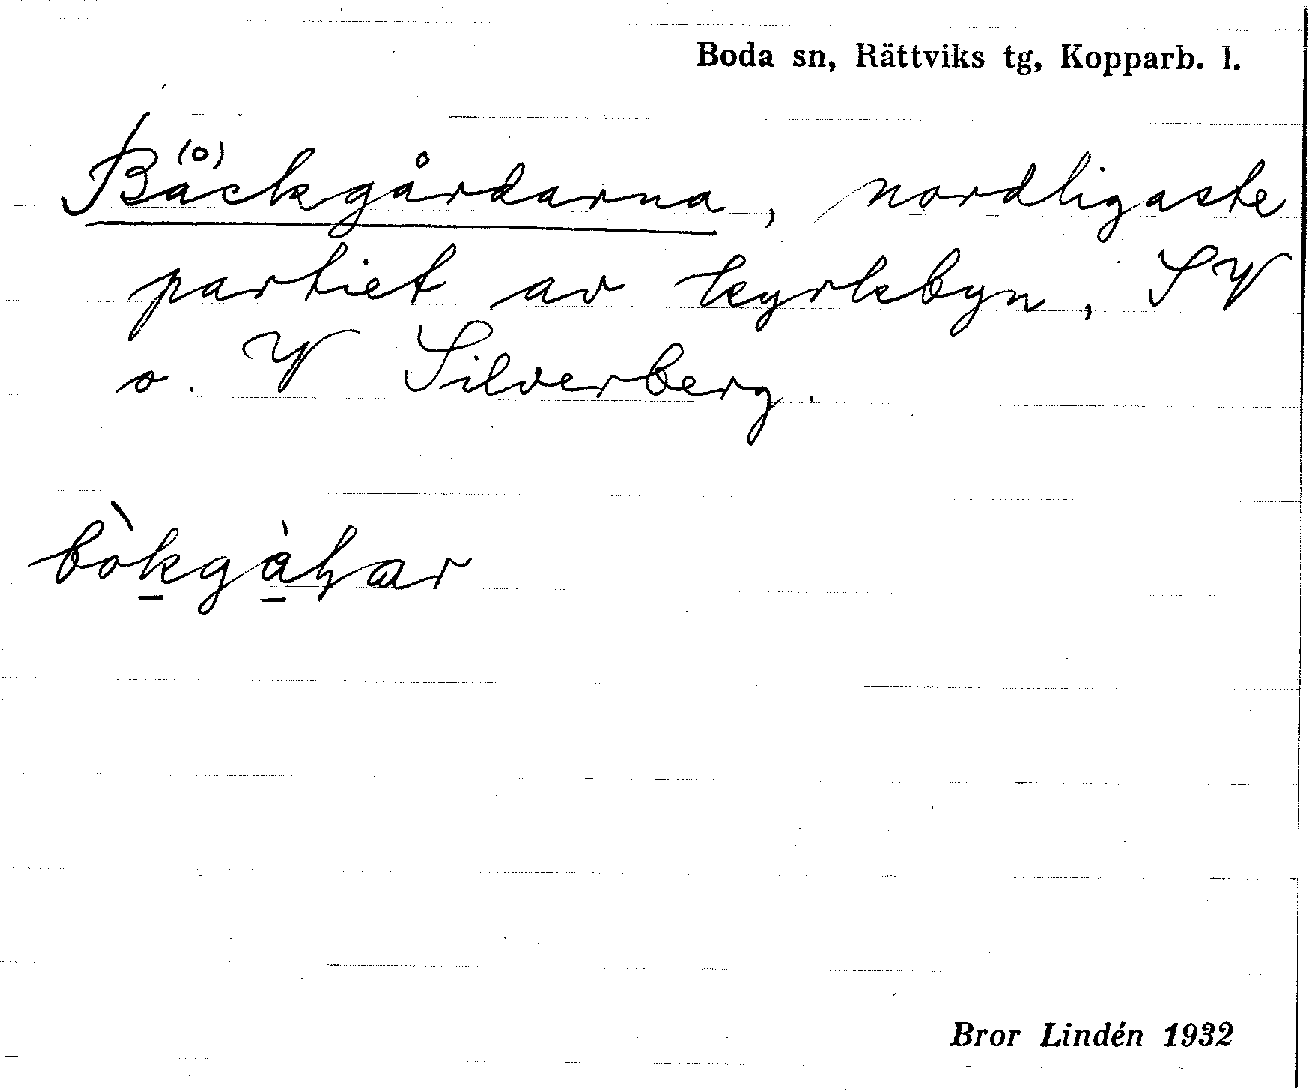 Boda sn, Rättviks tg, Kopparb. l.
Bäckgårdarna, nordligaste
(o)
partiet av kyrkbyn, SV
o. V Silverberg.
bòkgàɦar
Bror Lindén 1932